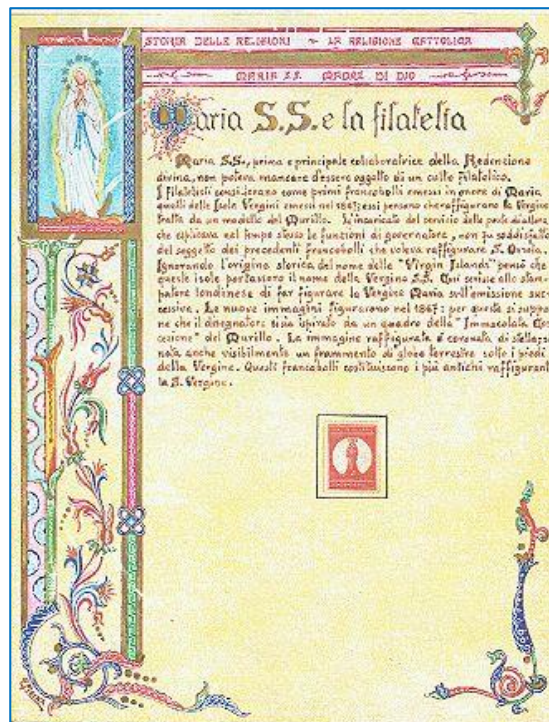 STORIA DELLE RELIGIONI ~ LA RELIGIONE CATTOLICA
MARIA SS. MADRE DI DIO
Maria S.S. e la filatelia
Maria S.S., prima e principale collaboratrice della Redenzione
divina, non poteva mancare d'essere oggetto di un culto filatelico.
I filatelisti considerano come primi francobolli emessi in onore di Maria
quelli delle Isole Vergini emessi nel 1867; essi pensano che raffigurano la Vergine
tratta da un modello del Murillo. L'incaricato del servizio delle poste di allora,
che esplicava nel tempo stesso le funzioni di governatore, non fu soddisfatto
del soggetto dei precedenti francobolli che voleva raffigurare S. Orsola.
Ignorando l'origine storica del nome delle "Virgin Islands" pensò che
queste isole portassero il nome della Vergine S.S. Qui scrisse allo stam-
patore londinese di far figurare la Vergine Maria sull'emissione suc-
cessiva. Le nuove immagini figurarono nel 1867: per queste si suppo-
ne che il disegnatore si sia ispirato da un quadro della "Immacolata Con-
cezione" del Murillo. La immagine raffigurata è coronata di stelle; si
nota anche visibilmente un frammento di globo terrestre sotto i piedi
della Vergine. Questi francobolli costituiscono i più antichi raffiguranti
la S. Vergine.